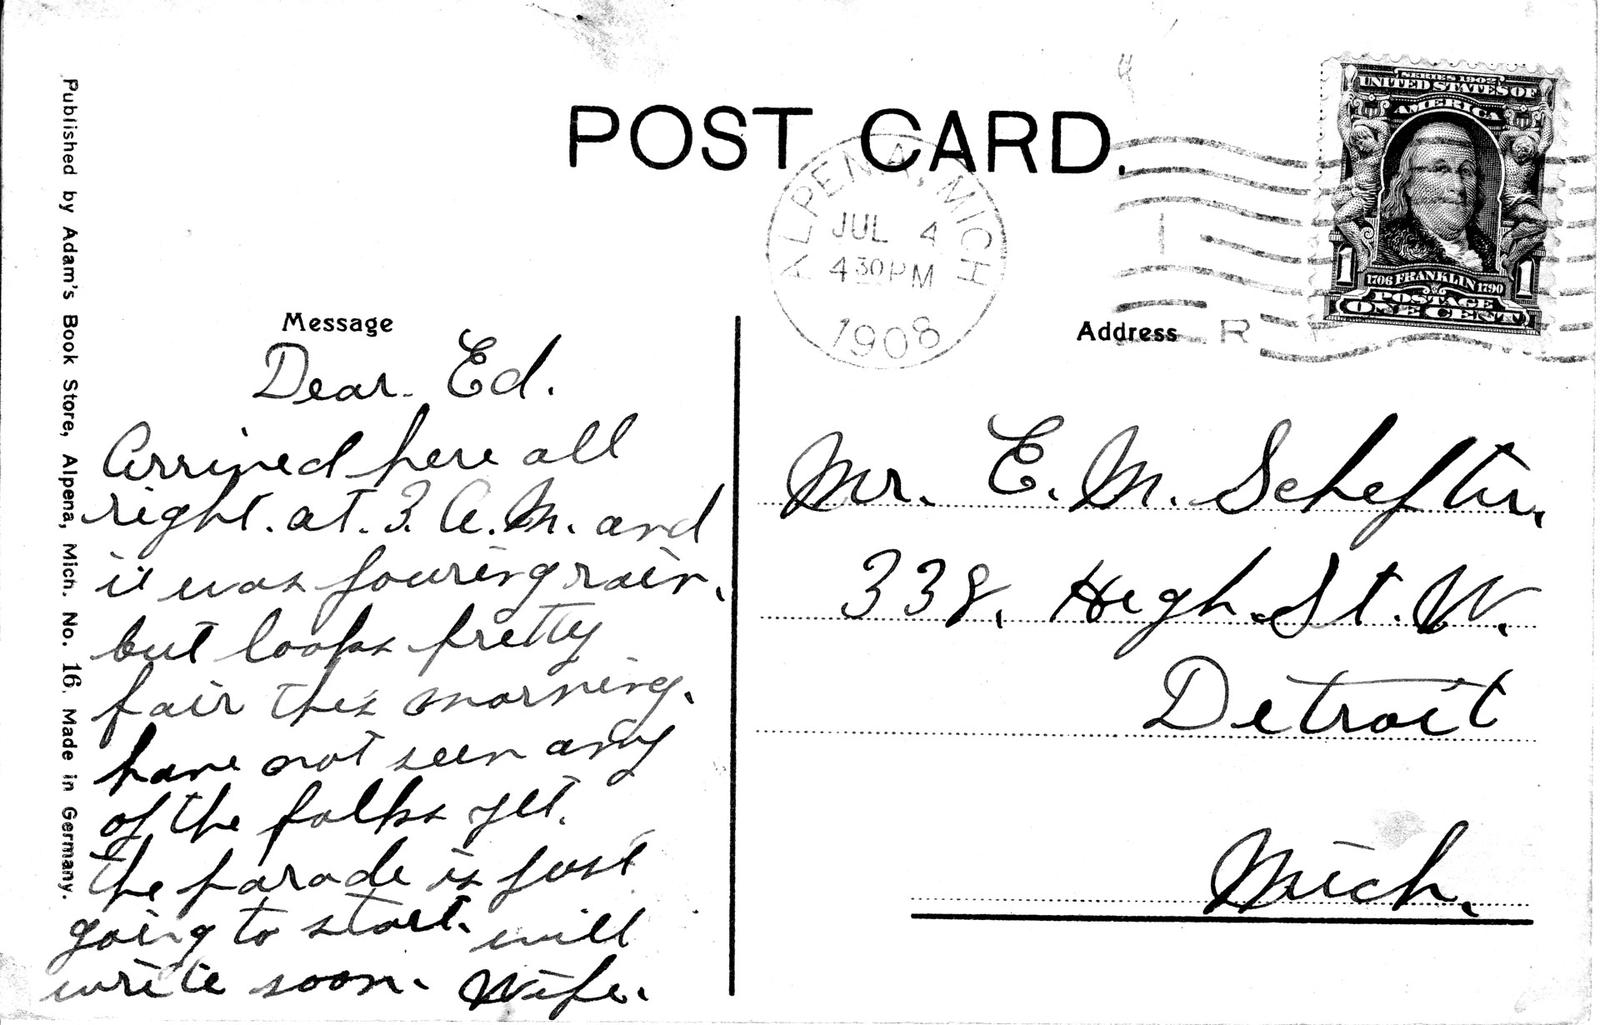 POST CARD.
ALPENA, MICH
JUL 4
4 30 PM
1908
SERIES 1902
UNITED STATES OF
AMERICA
1706 FRANKLIN 1790
1 1
POSTAGE
ONE CENT
R
Published by Adam's Book Store, Alpena, Mich. No. 16. Made in Germany.
Message
Dear Ed.
Arrived here all
right. at. 3. A.M. and
it was pouring rain.
but looks pretty
fair this morning.
have not seen any
of the folks yet.
the parade is just
going to start. will
write soon. Wife.
Address
Mr. E. M. Schefter.
338. High. St. W.
Detroit
Mich.